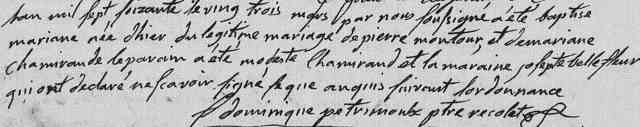 lan mil sept soixante le vingt trois mars par nous soussigné a été baptise
mariane née d'hier du légitime mariage de pierre montour et de mariane
chamirand le parain a été modeste Chamirand et la maraine josepte bellefleur
qui ont declaré ne scavoir signé se que anquis suivant lordonnance
dominique petrimoulx ptre recolet